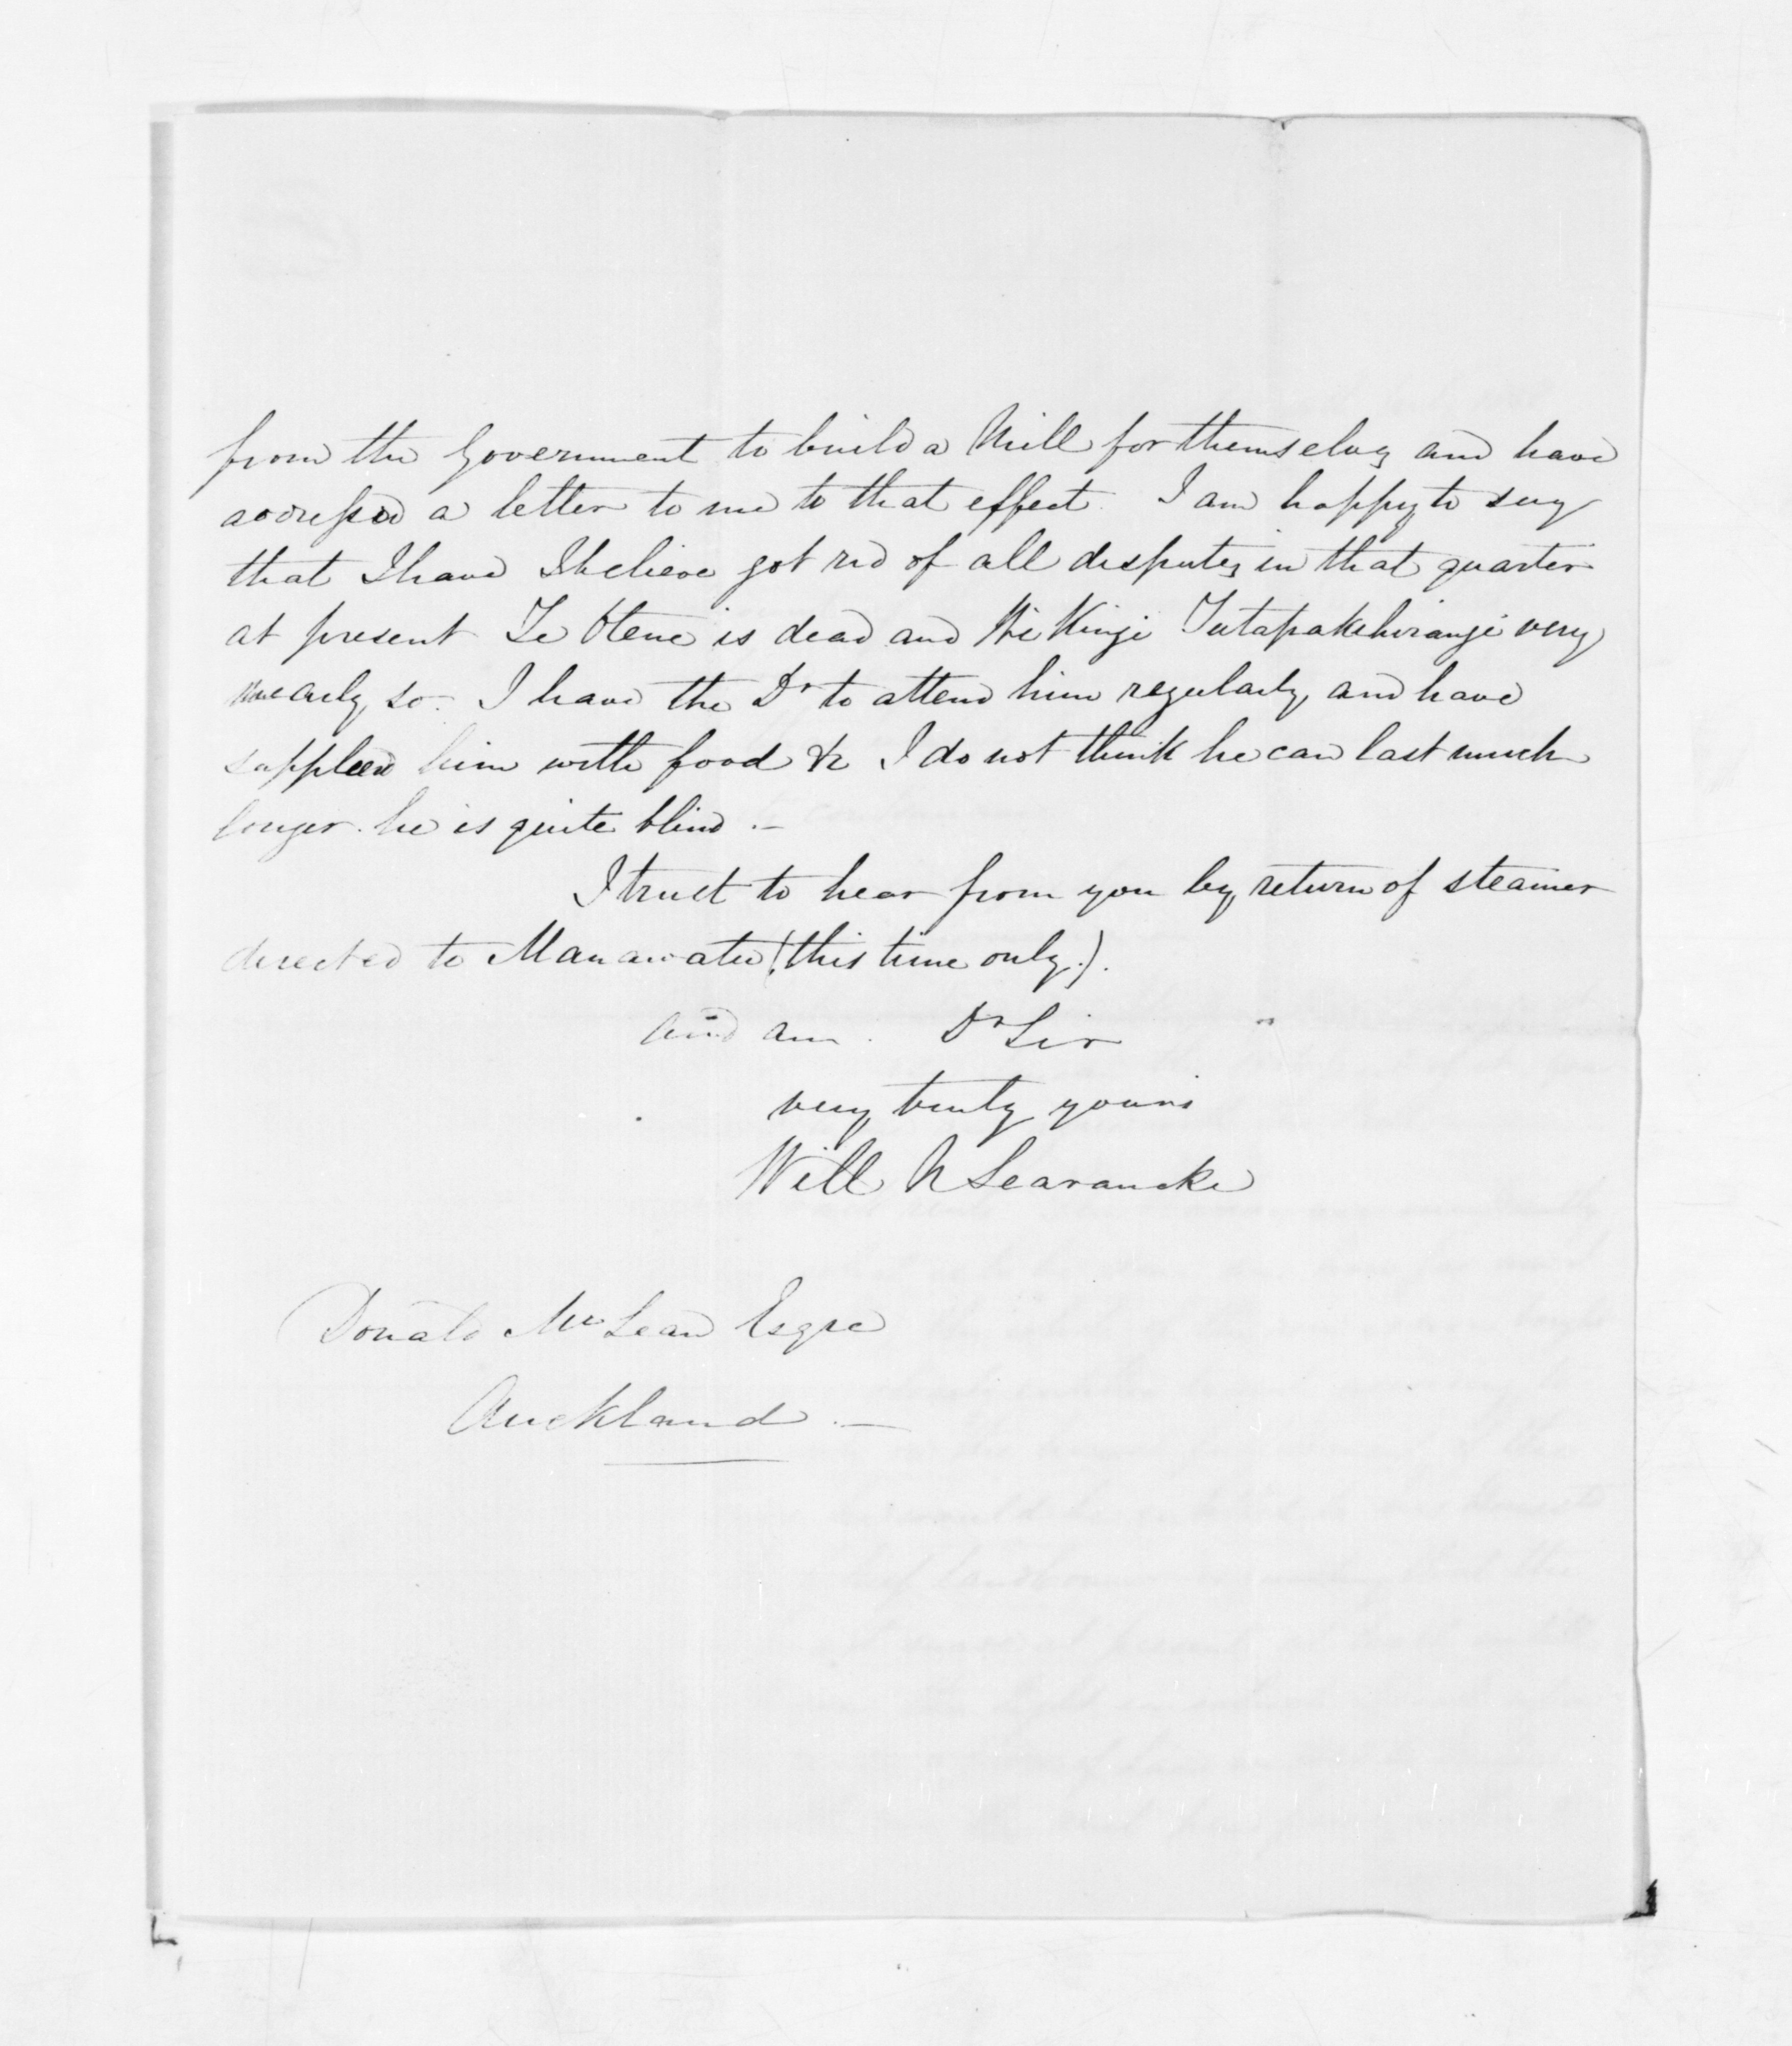 from the Government to build a Mill for themselves and have
addressed a letter to me to that effect. I am happy to say
that I have I believe got rid of all disputes in that quarter
at present Te Otene is dead and Wi Kingi Tutapakihirangi very
nearly so. I have the Dr to attend him regularly, and have
supplied him with food &c I do not think he can last much
longer. he is quite blind.—
I trust to hear from you by return of steamer
directed to Manawatu (this time only.).
and am. Dr Sir
very truly yours
Will N Searancke
Donald McLean Esqre
Auckland.—